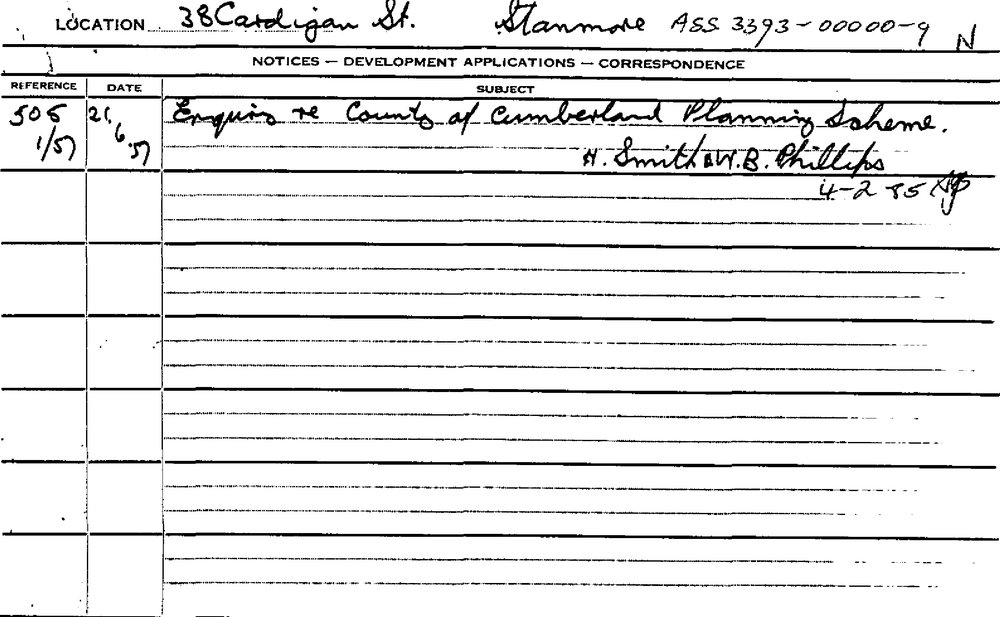 LOCATION 38 Cardigan St. Stanmore ASS 3393-00000-9 N
NOTICES — DEVELOPMENT APPLICATIONS — CORRESPONDENCE
REFERENCE DATE SUBJECT
505 21. Enquiry re County of Cumberland Planning Scheme.
1/57 6.57 H. Smith & W.B. Phillips
4-2-85